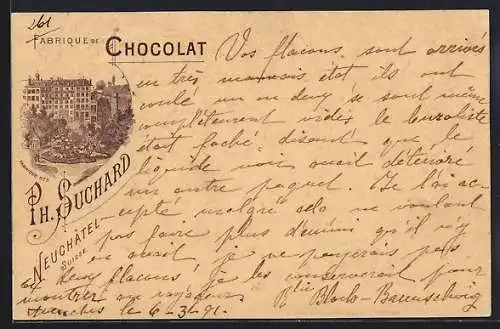 261
FABRIQUE DE CHOCOLAT
PH. SUCHARD
NEUCHÂTEL
SUISSE
Vos flacons sont arrivés
en très mauvais état ils ont
coulé un ou deux se sont même
complètement vidés le
était faché, disant que le
liquide noir avait détérioré
un autre paquet. Je l'ai ac-
cepté malgré cela ne voulant
pas faire plus d'ennui qu'il n'y
en avait je ne payerais pas
deux flacons je les conserverai pour
montrer au voyageur
le 6-3-91.